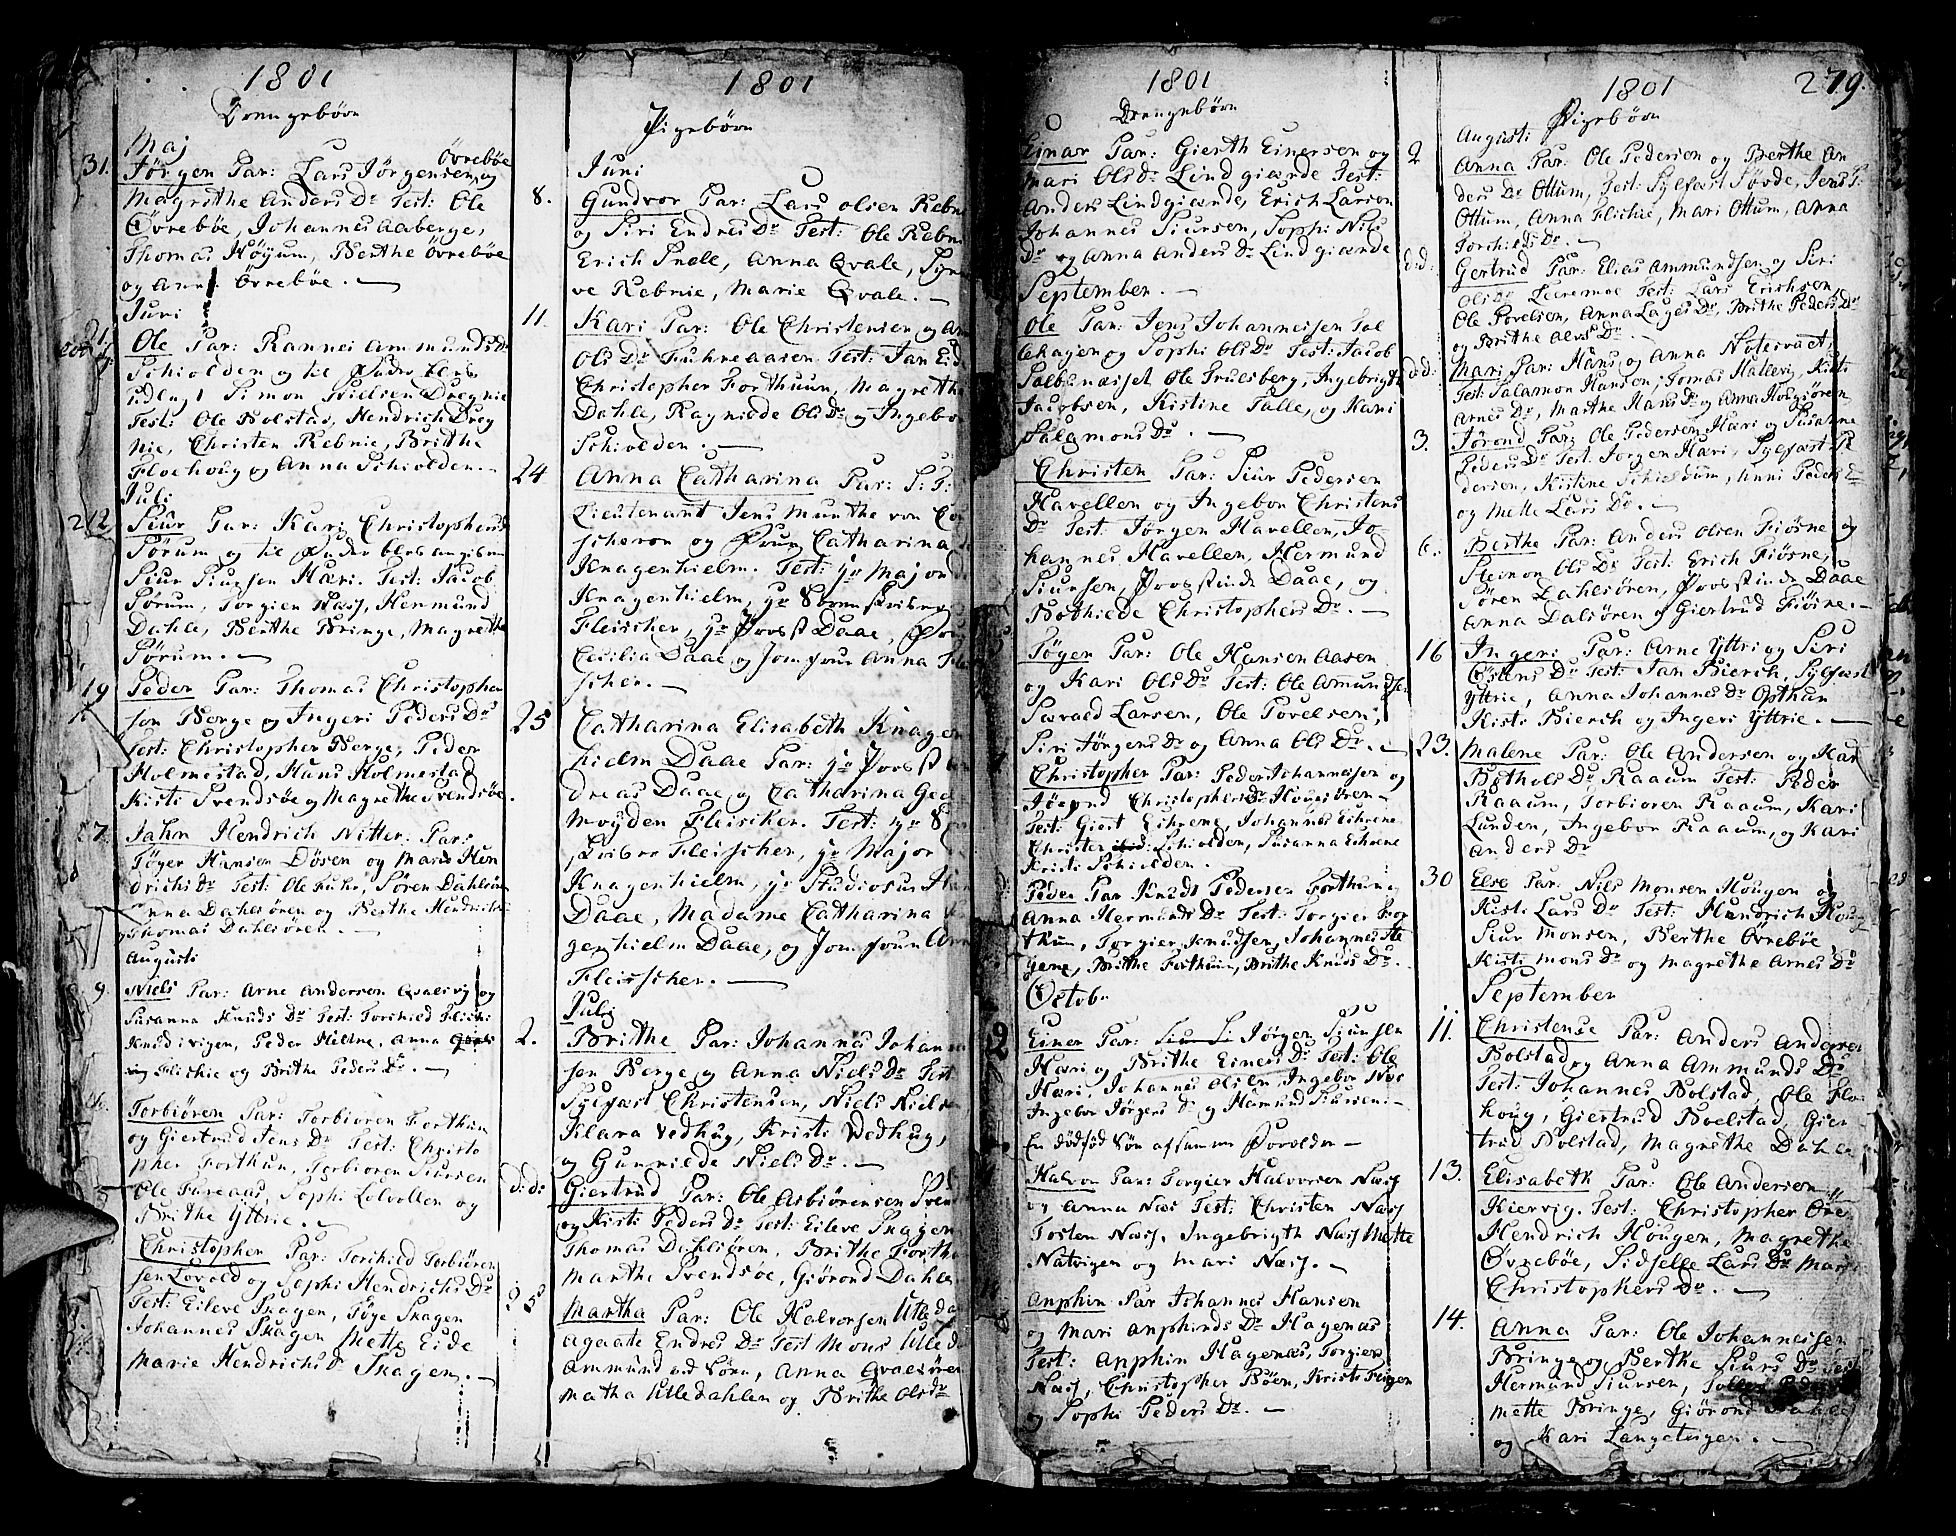 1801
Drengebörn
Maj
31. Jörgen Par: Lars Jörgensen Övreböe og
Magrethe Anders Dr Test: Ole
Övreböe, Johannes Aaberge,
Thomas Höyum, Berthe Övreböe
og Anna Övreböe.
Juni
21. Ole Par: Rannei Ammunds Dr
Schiolden og til Fader blev
udlagt Simon Nielsen Dregnie
Test: Ole Bolstad, Hendrich Dreg
nie, Christen Rebnie, Brithe
Floehoug og Anna Schiolden.
Juli
212 Siur Par: Kari Christophersdr
Sørum og til Fader blev angiven
Siur Siursen Hæri. Test: Jacob
Sørum, Torgier Næss, Hermund
Dahle, Berthe Bringe, Magrethe
Sørum.
19 Peder Par: Thomas Christopher
sen Berge og Ingeri Peders Dr
Test: Christopher Berge, Peder
Holmestad, Hans Holmestad
Kisti Svendsøe og Magrethe Svendsøe.
27. Jahn Hendrich Nitter. Par:
Töger Hansen Dösen og Maris Hen
drichs Dr Test: Ole Fuhr, Sören Dahlsören
Anna Dahlsören og Berthe Hendrichs
Thomas Dahlsören.
Augusti
9. Niels Par: Arne Andersen Qvalevig og
Susanna Knuds Dr Test: Torchild Flichi
Knud i vigen, Peder Hiltne, Anna
Flichie og Brithe Peders Dr.
16. Torbiören Par: Torbioren Forthun
og Giertrud Jens Dr Test: Christo
pher Forthun, Torbioren Siursen
Ole Fureaas, Sophi Lolvollen og
Brithe Yttrie.
Christopher Par: Torchild Torbiören
sen Lovald og Sophi Hendrichs Dr
Test: Eileve Skagen, Töge Skagen
Johannes Skagen Mette Eide
Marie Hendrichsdr Skagen.
1801
Pigebörn
Juni
8. Gundvor Par: Lars Olsen Rebni
og Siri Endres Dr Test: Ole Rebni
Erich Qvale, Anna Qvale, Syne
ve Rebnie, Marie Qvale.
11. Kari Par: Ole Christensen og An
Ols Dr Fuhreaasen Test: Jan Eid
Christopher Forthuun, Magrethe
Dahle, Ragnilde Ols Dr og Ingebor
Schiolden.
24 Anna Catharina Par: S: T:
Lieutenant Jens Munthe von Cor
scheron og Frue Catharina
Knagenhielm. Test: Hr Major
Knagenhielm, Hr Sorenskriver
Fleischer, Hr Provst Daae, Frue
Cecilia Daae og Jomfrue Anna Flei
scher.
25 Catharina Elisabeth Knagen
hielm Daae Par: Hr Provst An
dreas Daae og Catharina Ged
Moyden Fleischer. Test: Hr Soren
skriver Fleischer, Hr Major
Knagenhielm, Hr Studiosus Han
Daae, Madame Catharina Kna
genhielm Daae, og Jomfrue Ann
Fleisscher.
Juli
2. Brithe Par: Johannes Johann
sen Berge og Anna Niels Dr Test
Sylfæst Christensen, Niels Nielsen
Klara Vedhug, Kristi Vedhug,
og Gunnilde Niels Dr.
d:d: Giertrud Par: Ole Asbiörensen Sven
og Kisti Peders Dr Test: Eileve Skagen
Thomas Dahlsören, Brithe Forth
Marthe Svendsöe, Giörond Dahle
25 Martha Par: Ole Halvorsen Utleda
Agaate Endres Dr Test Mons Utleda
Ammund ad Sörn, Anna Qvalesören
Matha Utledahlen og Brithe Olsdr
1801
Drengebörn
Einar Par: Gierth Einersen og
Mari Olsdr Lindgiærde Test:
Anders Lindgiærde, Erich Larsen
Johannes Siursen, Sophi Nils
Dr og Anna Anders Dr Lindgiærde
September.
Ole Par: Jens Johannessen Sol
lehagen og Sophi Ols Dr Test: Jacob
Salbunæsset Ole Trulsberg, Ingebrigt
Jacobsen, Kistine Talle, og Kari
Salamons Dr.
Christen Par: Siur Pedersen
Havellen og Ingebor Christens
Dr Test: Jörgen Havellen, Jo
hannes Havellen, Hermund
Siursen, Provstinde Daae, og
Bothilde Christophers Dr.
Töger Par: Ole Hansen Aasen
og Kari Ols Dr Test: Ole Ammundse
Særaad Larsen, Ole Povelsen,
Siri Jörgens Dr og Anna Ols Dr.
Christopher Par: Peder Johannessen og
Jörond Christophers Dr Hougsören
Test: Giert Eikrene, Johannes Eikrene
Christen Schiolden, Susanna Eikrene
Kristi Schiolden.
Peder Par Knudt Pedersen Forthun og
Anna Hermunds Dr Test: Torgier For
thun, Torgier Knudsen, Johannes Ste
gene, Brithe Forthuun, Brithe Knuds Dr.
Octobr
2 Einer Par: Jörgen Siursen
Hæri og Brithe Einers Dr Test: Ole
Hæri, Johannes Olsen, Ingebor Næs
Ingebor Jörgens Dr og Hermund Siursen.
En dödföd Sön af samme Forældre
Halvor Par: Torgier Halvorsen Næss
og Anna Næs Test: Christen Næss
Tosten Næss, Ingebrigth Næss Mette
Natvigen og Mari Næss.
Anphin Par Johannes Hansen
og Mari Anphinds Dr Hagenæs
Test: Anphin Hagenæs, Torgier
Næss, Christopher Böen, Kristi Teigen
og Sophi Peders Dr.
1801
279.
Pigebörn
Augusti
2 Anna Par: Ole Pedersen og Berthe An
ders Dr Ottum, Test: Sylfæst Søvde, Jens P:
Ottum, Anna Flichie, Mari Ottum, Anna
Torchilds Dr.
d:d: Gertrud Par: Elias Ammundsen og Siri
Olsdr Leeremoe Test: Lars Erichsen,
Ole Povelsen, Anna Lages Dr, Brithe Peders Dr
og Brithe Alvs Dr.
d:d: Mari Par: Hans og Anna Notesvaet,
Test: Salamon Hansen, Tomas Hallevig, Kisti
Arnes Dr, Marthe Hans Dr og Anna Hougsören
3. Jörond Par: Ole Pedersen Hæri og Susanne
Peders Dr Test: Jorgen Hæri, Sylfæst Pe
dersen, Kistine Schieldum, Anni Peders Dr
og Mette Lars Dr.
6. Berthe Par: Anders Olsen Fiösne og
Steinon Ols Dr Test: Erich Fiösne,
Sören Dahlsören, Provstinde Daae
Anna Dalsören og Giertrud Fiösne.
16 Ingeri Par: Arne Yttri og Siri
Östens Dr Test: Jan Bierch, Sylfæst
Yttrie, Anna Johannes Dr Opthun
Kisti Bierch og Ingeri Yttrie.
23. Malene Par: Ole Andersen og Kari
Bothols Dr Raaum Test: Peder
Raaum, Torbioren Raaum, Kari
Lunden, Ingebor Raaum, og Kari
Anders Dr
30 Else Par: Nils Monsen Hougen og
Kisti Lars Dr Test: Hendrich Houg
Siur Monsen, Berthe Övrebøe
Kisti Mons Dr og Magrethe Arnes Dr
September
11. Christense Par: Anders Anderse
Bolstad og Anna Ammunds Dr
Test: Johannes Bolstad, Ole Flo
houg, Giertrud Boelstad, Gier
trud Bolstad, Magrethe Dahle
13. Elisabeth Par: Ole Andersen
Kiervig. Test: Christopher Övre
Hendrich Hougen, Magrethe
Övrebøe, Sidselle Lars Dr Mari
Christophers Dr.
14. Anna Par: Ole Johannessen
Bringe og Berthe Siurs Dr Test
Hermund Siursen,
Mette Bringe, Giörond Dahle
og Kari Langeteigen.